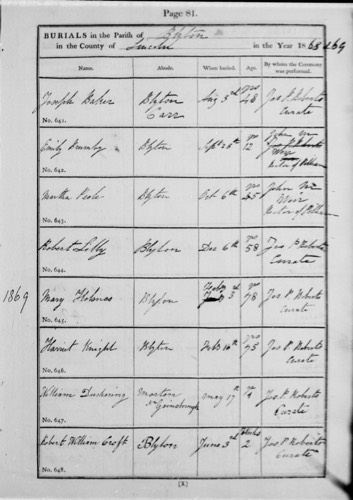 Page 81.
BURIALS in the Parish of Blyton
in the County of Lincoln in the Year 1868 & 69
Name. Abode. When buried. Age. By whom the Ceremony was performed.
Joseph Baker Blyton Carr Aug 3rd 48 Jos P. Roberts Curate
No. 641.
Emily Blyton Sept 26th 12 John Wm Rector of
No. 642.
Martha Poole Blyton Oct 6th John Wm Rector of
No. 643.
Robert Lilly Blyton Dec 6th 58 Jos P Roberts Curate
No. 644.
1869
Mary Holmes Blyton 3rd 78 Jos P Roberts Curate
No. 645.
Harriet Knight Blyton Feb 10th 75 Jos P Roberts Curate
No. 646.
William Morton Nr Gainsborough May 17th Jos P. Roberts Curate
No. 647.
Robert William Croft Blyton June 3rd 2 Jos P Roberts Curate
No. 648.